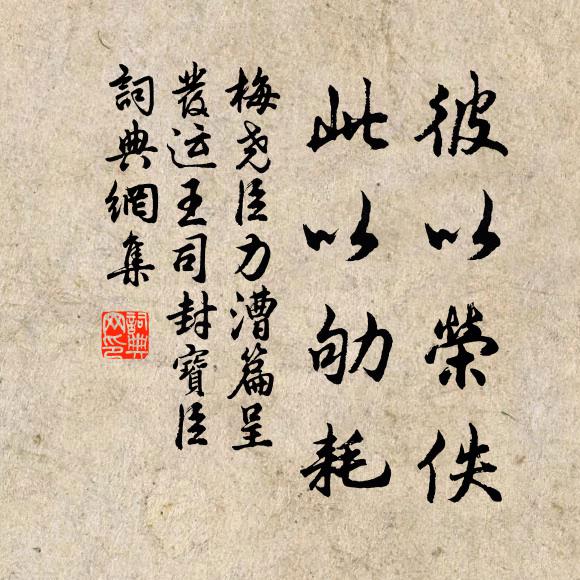 彼以榮佚
此以劬耗
梅尧臣力漕篇呈
發运王司封寶臣
詞典網集
詞典
网印